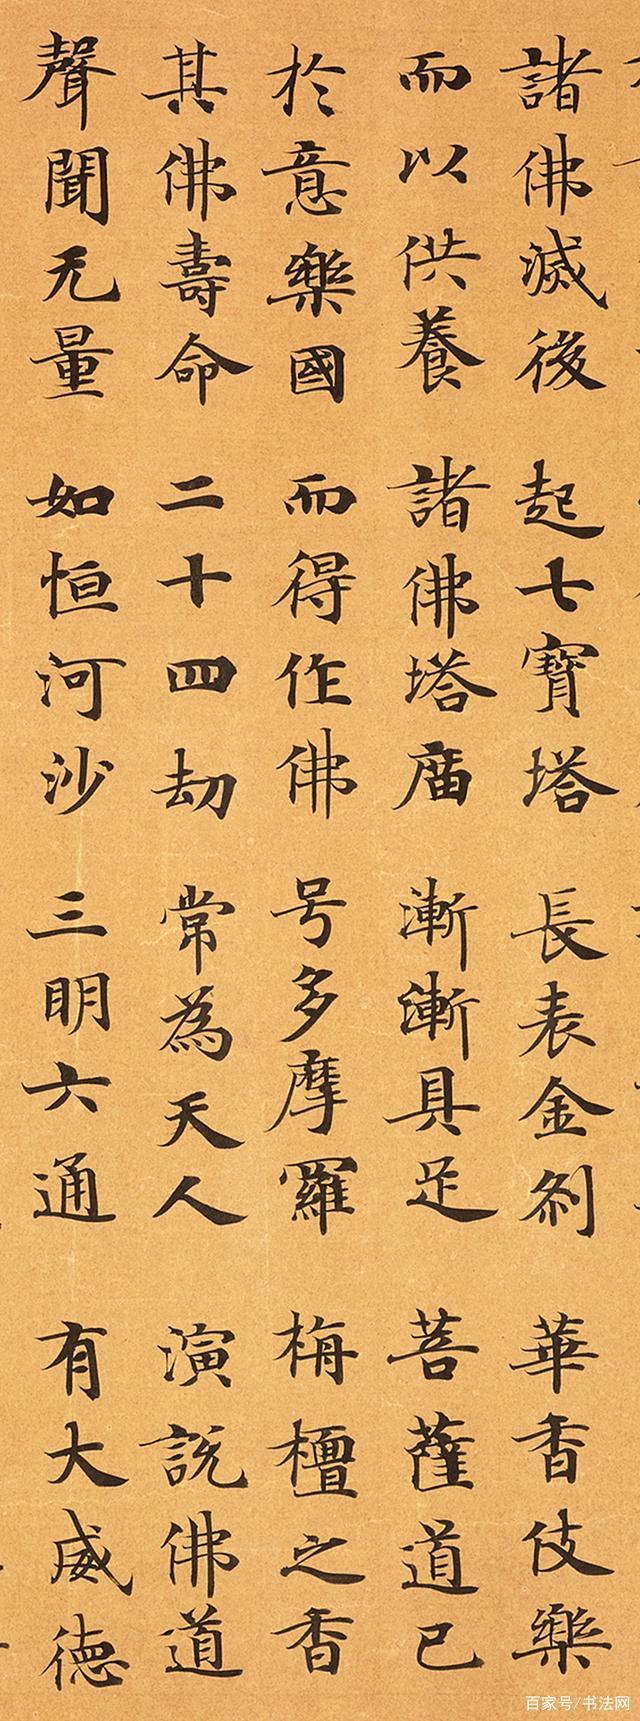 諸佛滅後 起七寶塔 長表金刹 華香伎樂
而以供養 諸佛塔廟 漸漸具足 菩薩道已
於意樂國 而得作佛 号多摩羅 栴檀之香
其佛壽命 二十四劫 常為天人 演説佛道
聲聞无量 如恒河沙 三明六通 有大威德
百家号/书法网